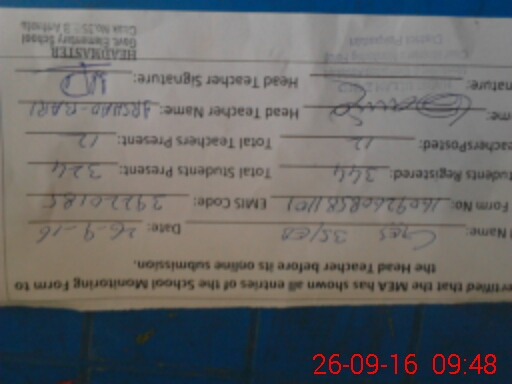 ertified that the MEA has shown all entries of the School Monitoring Form to
the Head Teacher before its online submission.
Name: GES 35/EB Date: 26-9-16
Form No: EMIS Code: 39220185
tudents Registered: 344 Total Students Present: 324
TeachersPosted: 12 Total Teachers Present: 12
me: Head Teacher Name: ARSHAD BARI
nature: Head Teacher Signature:
HEADMASTER
Govt. Elementary School
26-09-16 09:48